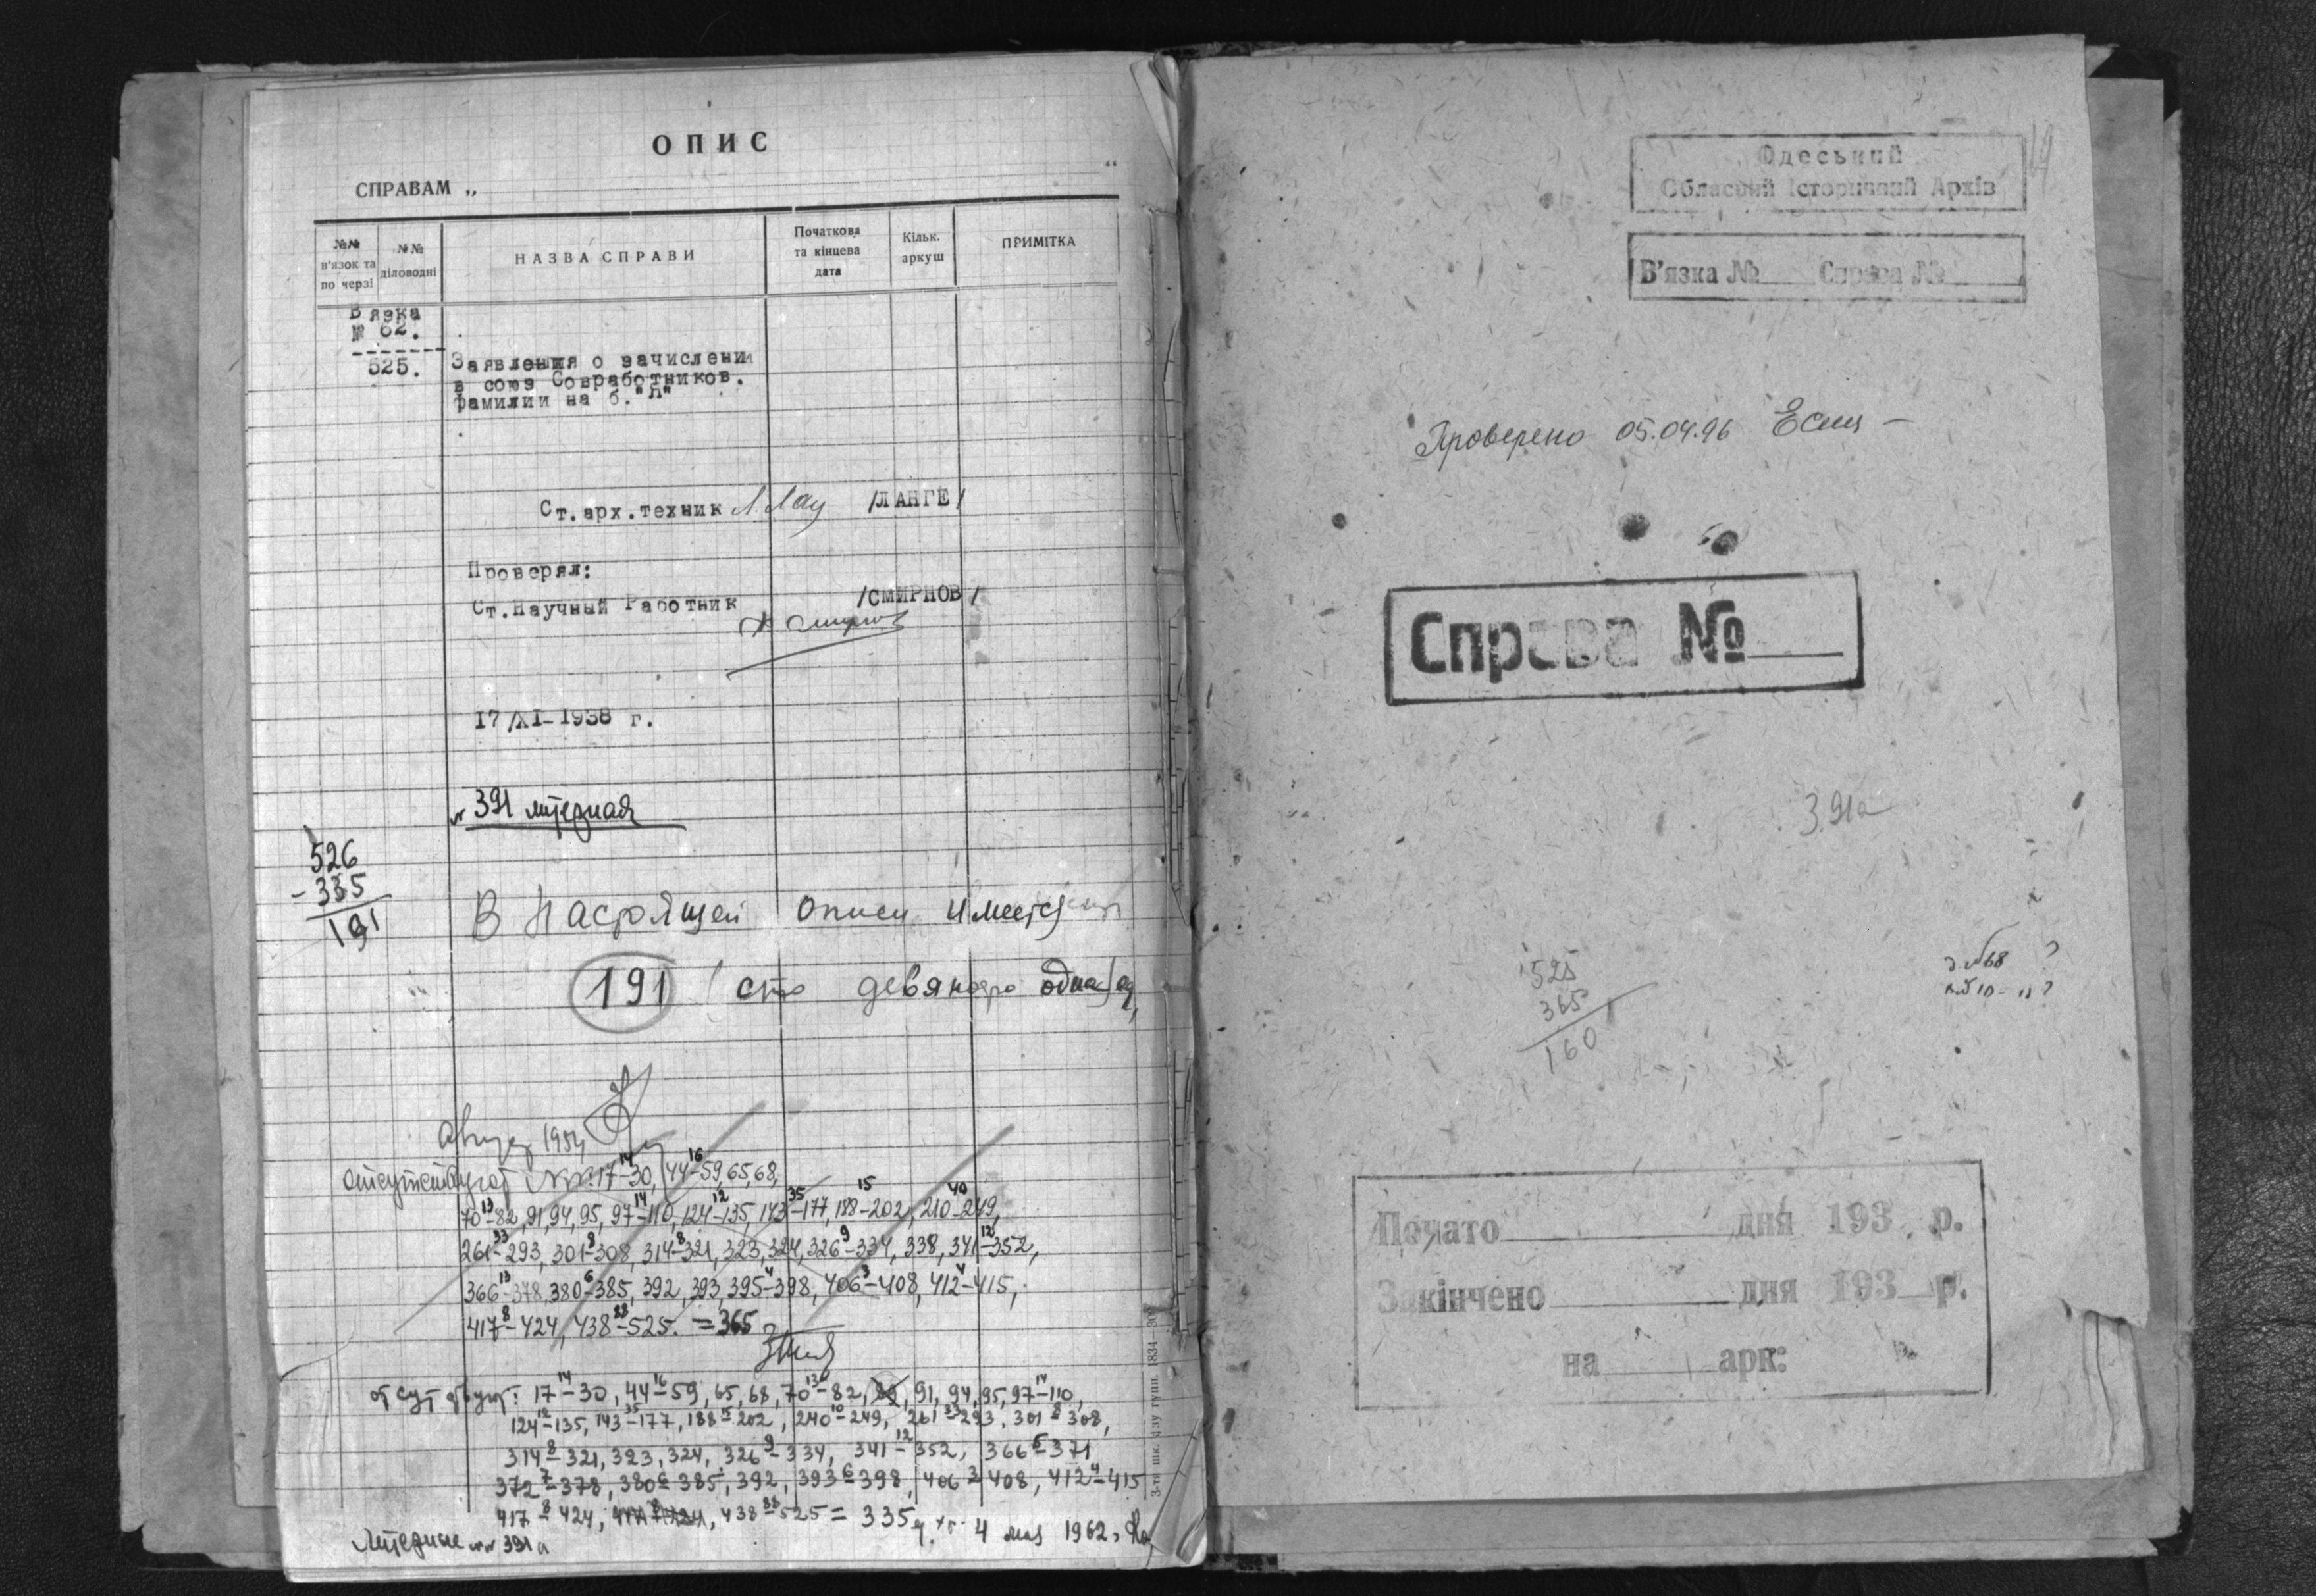 ОПИС
СПРАВАМ „ “
№№ в'язок та по черзі
№№ діловодні
НАЗВА СПРАВИ
Початкова та кінцева дата
Кільк. аркуш
ПРИМІТКА
Вязка
№ 62.
525. Заявления о зачислении
в союз Совработников.
фамилии на б."Л"
Ст.арх.техник /ЛАНГЕ/
Проверял:
Ст.Научный Работник /СМИРНОВ/
17/XI-1938 г.
№ 391 литерная
526
- 335
191
В настоящей описи имеется
191 (сто девяносто одна) ед.
Август 1954
Отсутствуют №№ 17-30, 44-59, 65, 68,
14 16
70-82, 91, 94, 95, 97-110, 124-135, 143-177, 188-202, 210-249,
13 14 12 35 15 40
261-293, 301-308, 314-321, 323, 324, 326-334, 338, 341-352,
33 8 8 9 12
366-378, 380-385, 392, 393, 395-398, 406-408, 412-415,
13 6 4 3 4
417-424, 438-525. = 365
8 88
отсутствуют: 17-30, 44-59, 65, 68, 70-82, 91, 94, 95, 97-110,
14 16 13 14
124-135, 143-177, 188-202, 240-249, 261-293, 301-308,
12 35 15 10 33 8
314-321, 323, 324, 326-334, 341-352, 366-371
8 9 12 5
372-378, 380-385, 392, 393-398, 406-408, 412-415
7 6 6 3 4
417-424, 438-525 = 335 4 мая 1962
8 88
Литерные №№ 391а
Одеський
Обласний Історичний Архів
В'язка № Справа №
Проверено 05.04.96
Справа №
391а
525
365
160
Почато дня 193 р.
Закінчено дня 193 р.
на арк: